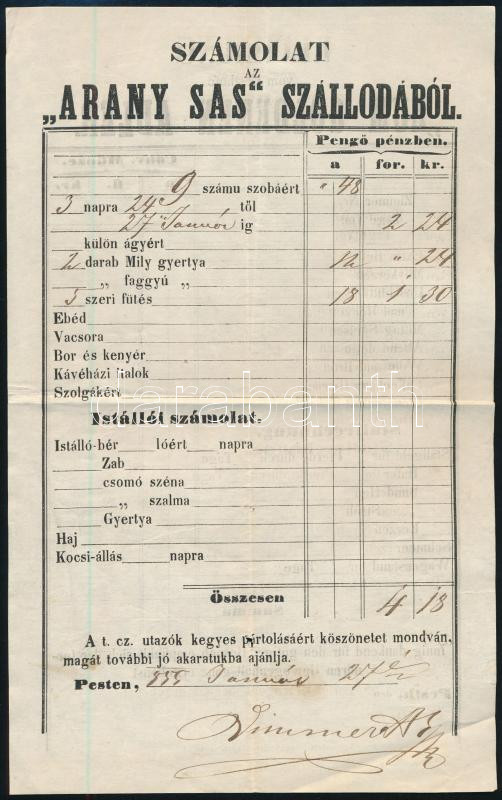 SZÁMOLAT
AZ
„ARANY SAS“ SZÁLLODÁBÓL.
Pengö pénzben.
a for. kr.
9 számu szobáért " 48
3 napra 24 től
27 Január ig 2 24
külön ágyért
2 darab Mily gyertya 12 " 24
„ faggyú „
5 szeri fütés 18 1 30
Ebéd
Vacsora
Bor és kenyér
Kávéházi italok
Szolgákért
Istállói számolat.
Istálló-bér lóért napra
Zab
csomó széna
„ szalma
Gyertya
Haj
Kocsi-állás napra
Összesen 4 18
A t. cz. utazók kegyes pártolásáért köszönetet mondván,
magát további jó akaratukba ajánlja.
Pesten, Január 27
darabanth